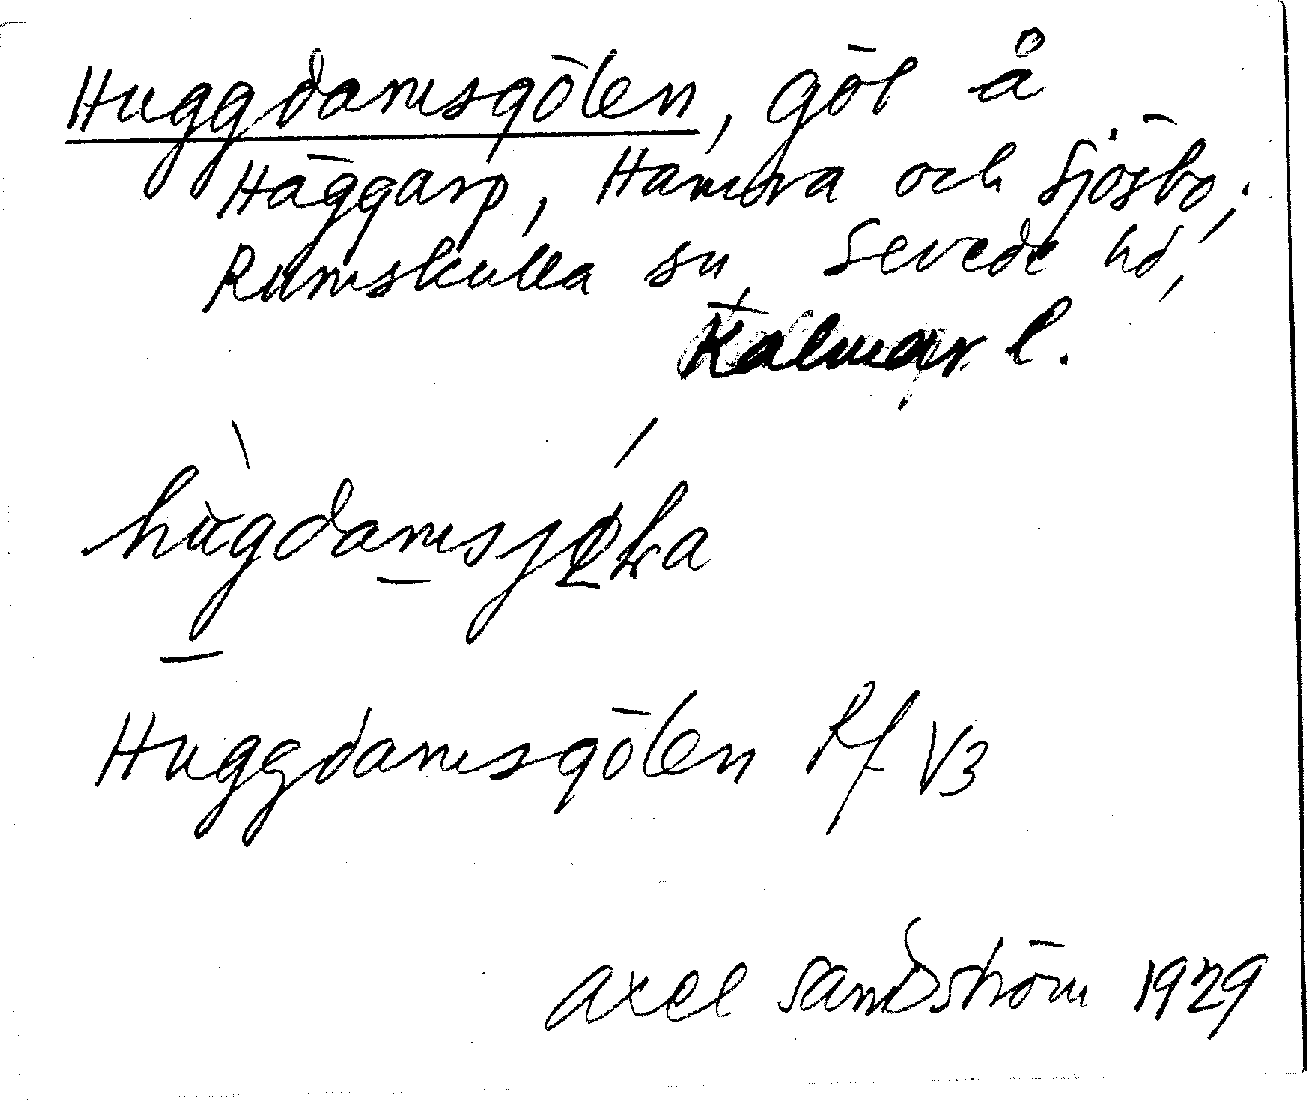 Huggdamsgölen, göl å
Häggarp, Hamra och Sjösbo,
Rumskulla sn, Sevede hd,
Kalmar l.
Huggdamsgölen Rf V3
Axel Sandström 1929